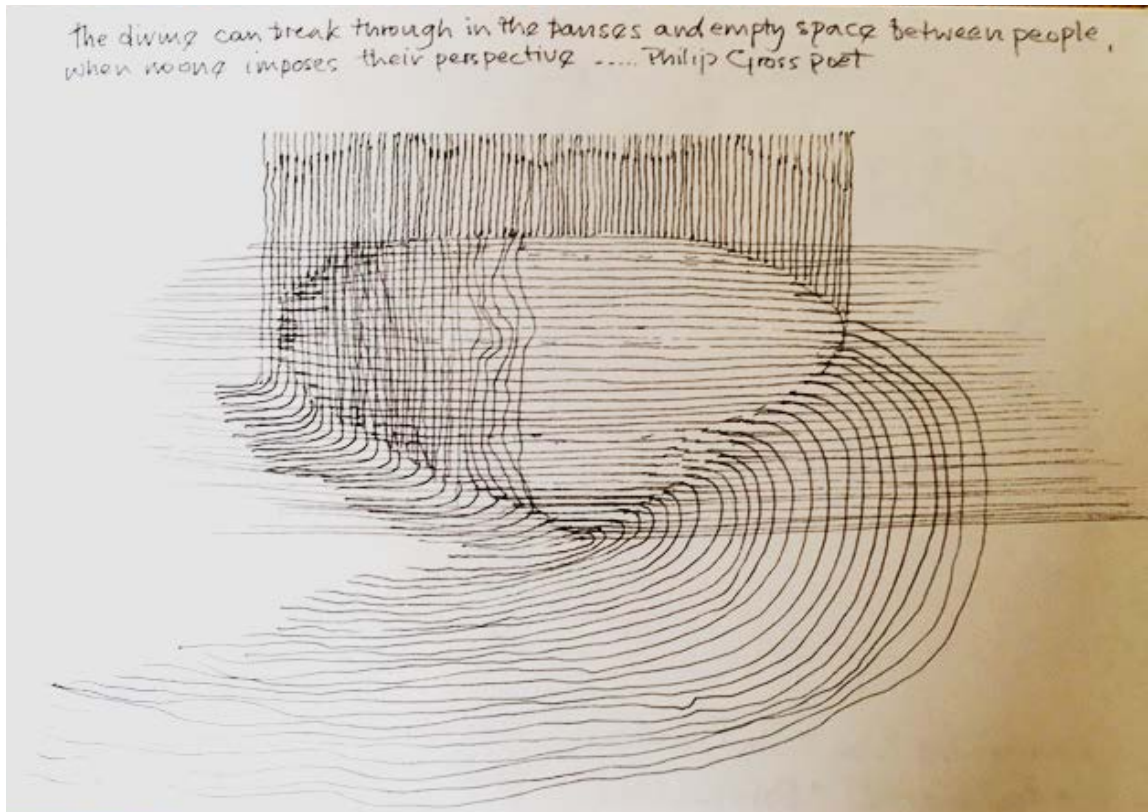 the divine can break through in the pauses and empty space between people,
when no one imposes their perspective ..... Philip Gross poet